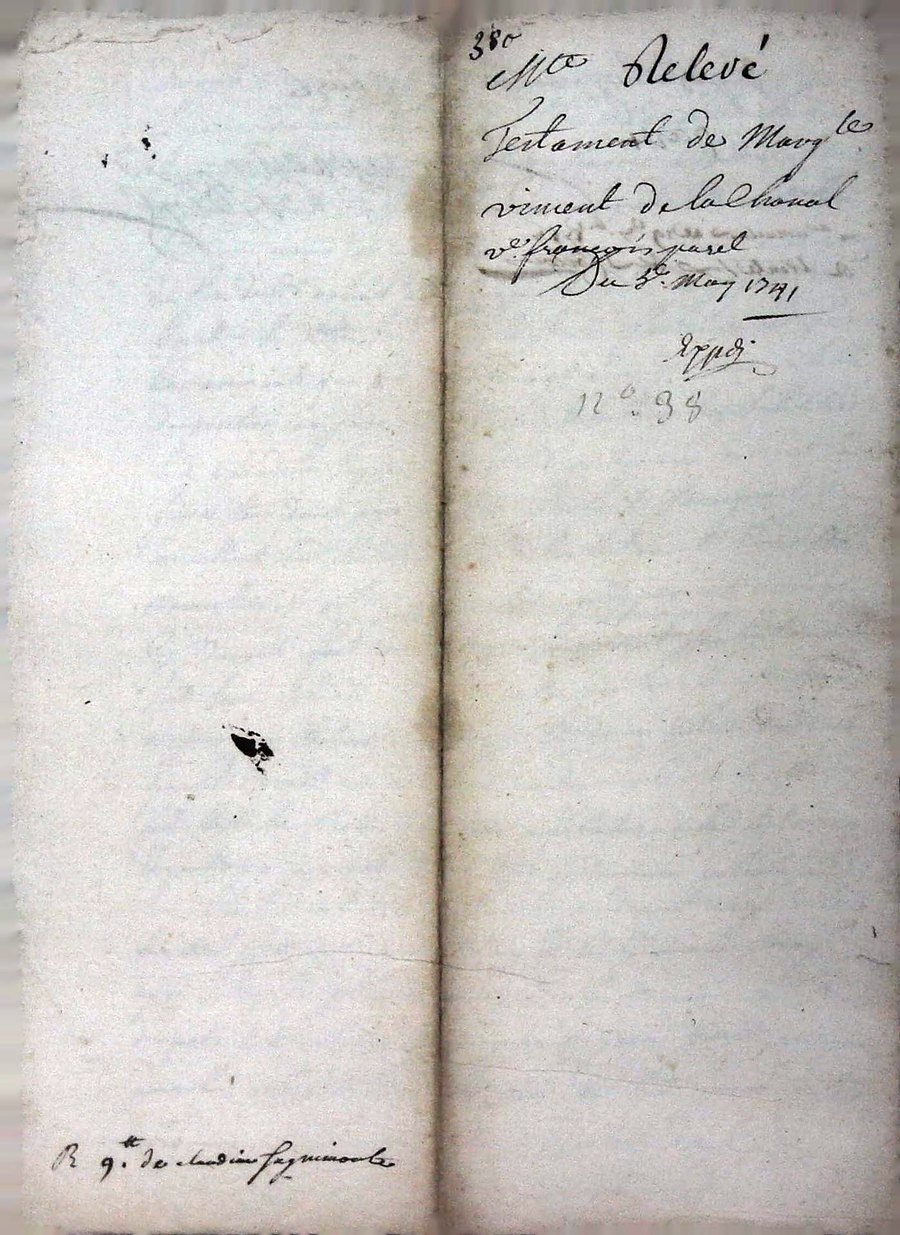 380
Mte Relevé
Testament de Margte
viment de la Chanal
ve. françois parel
Du 3e. May 1741
Expdi
no. 98
R 9tt. de claudine